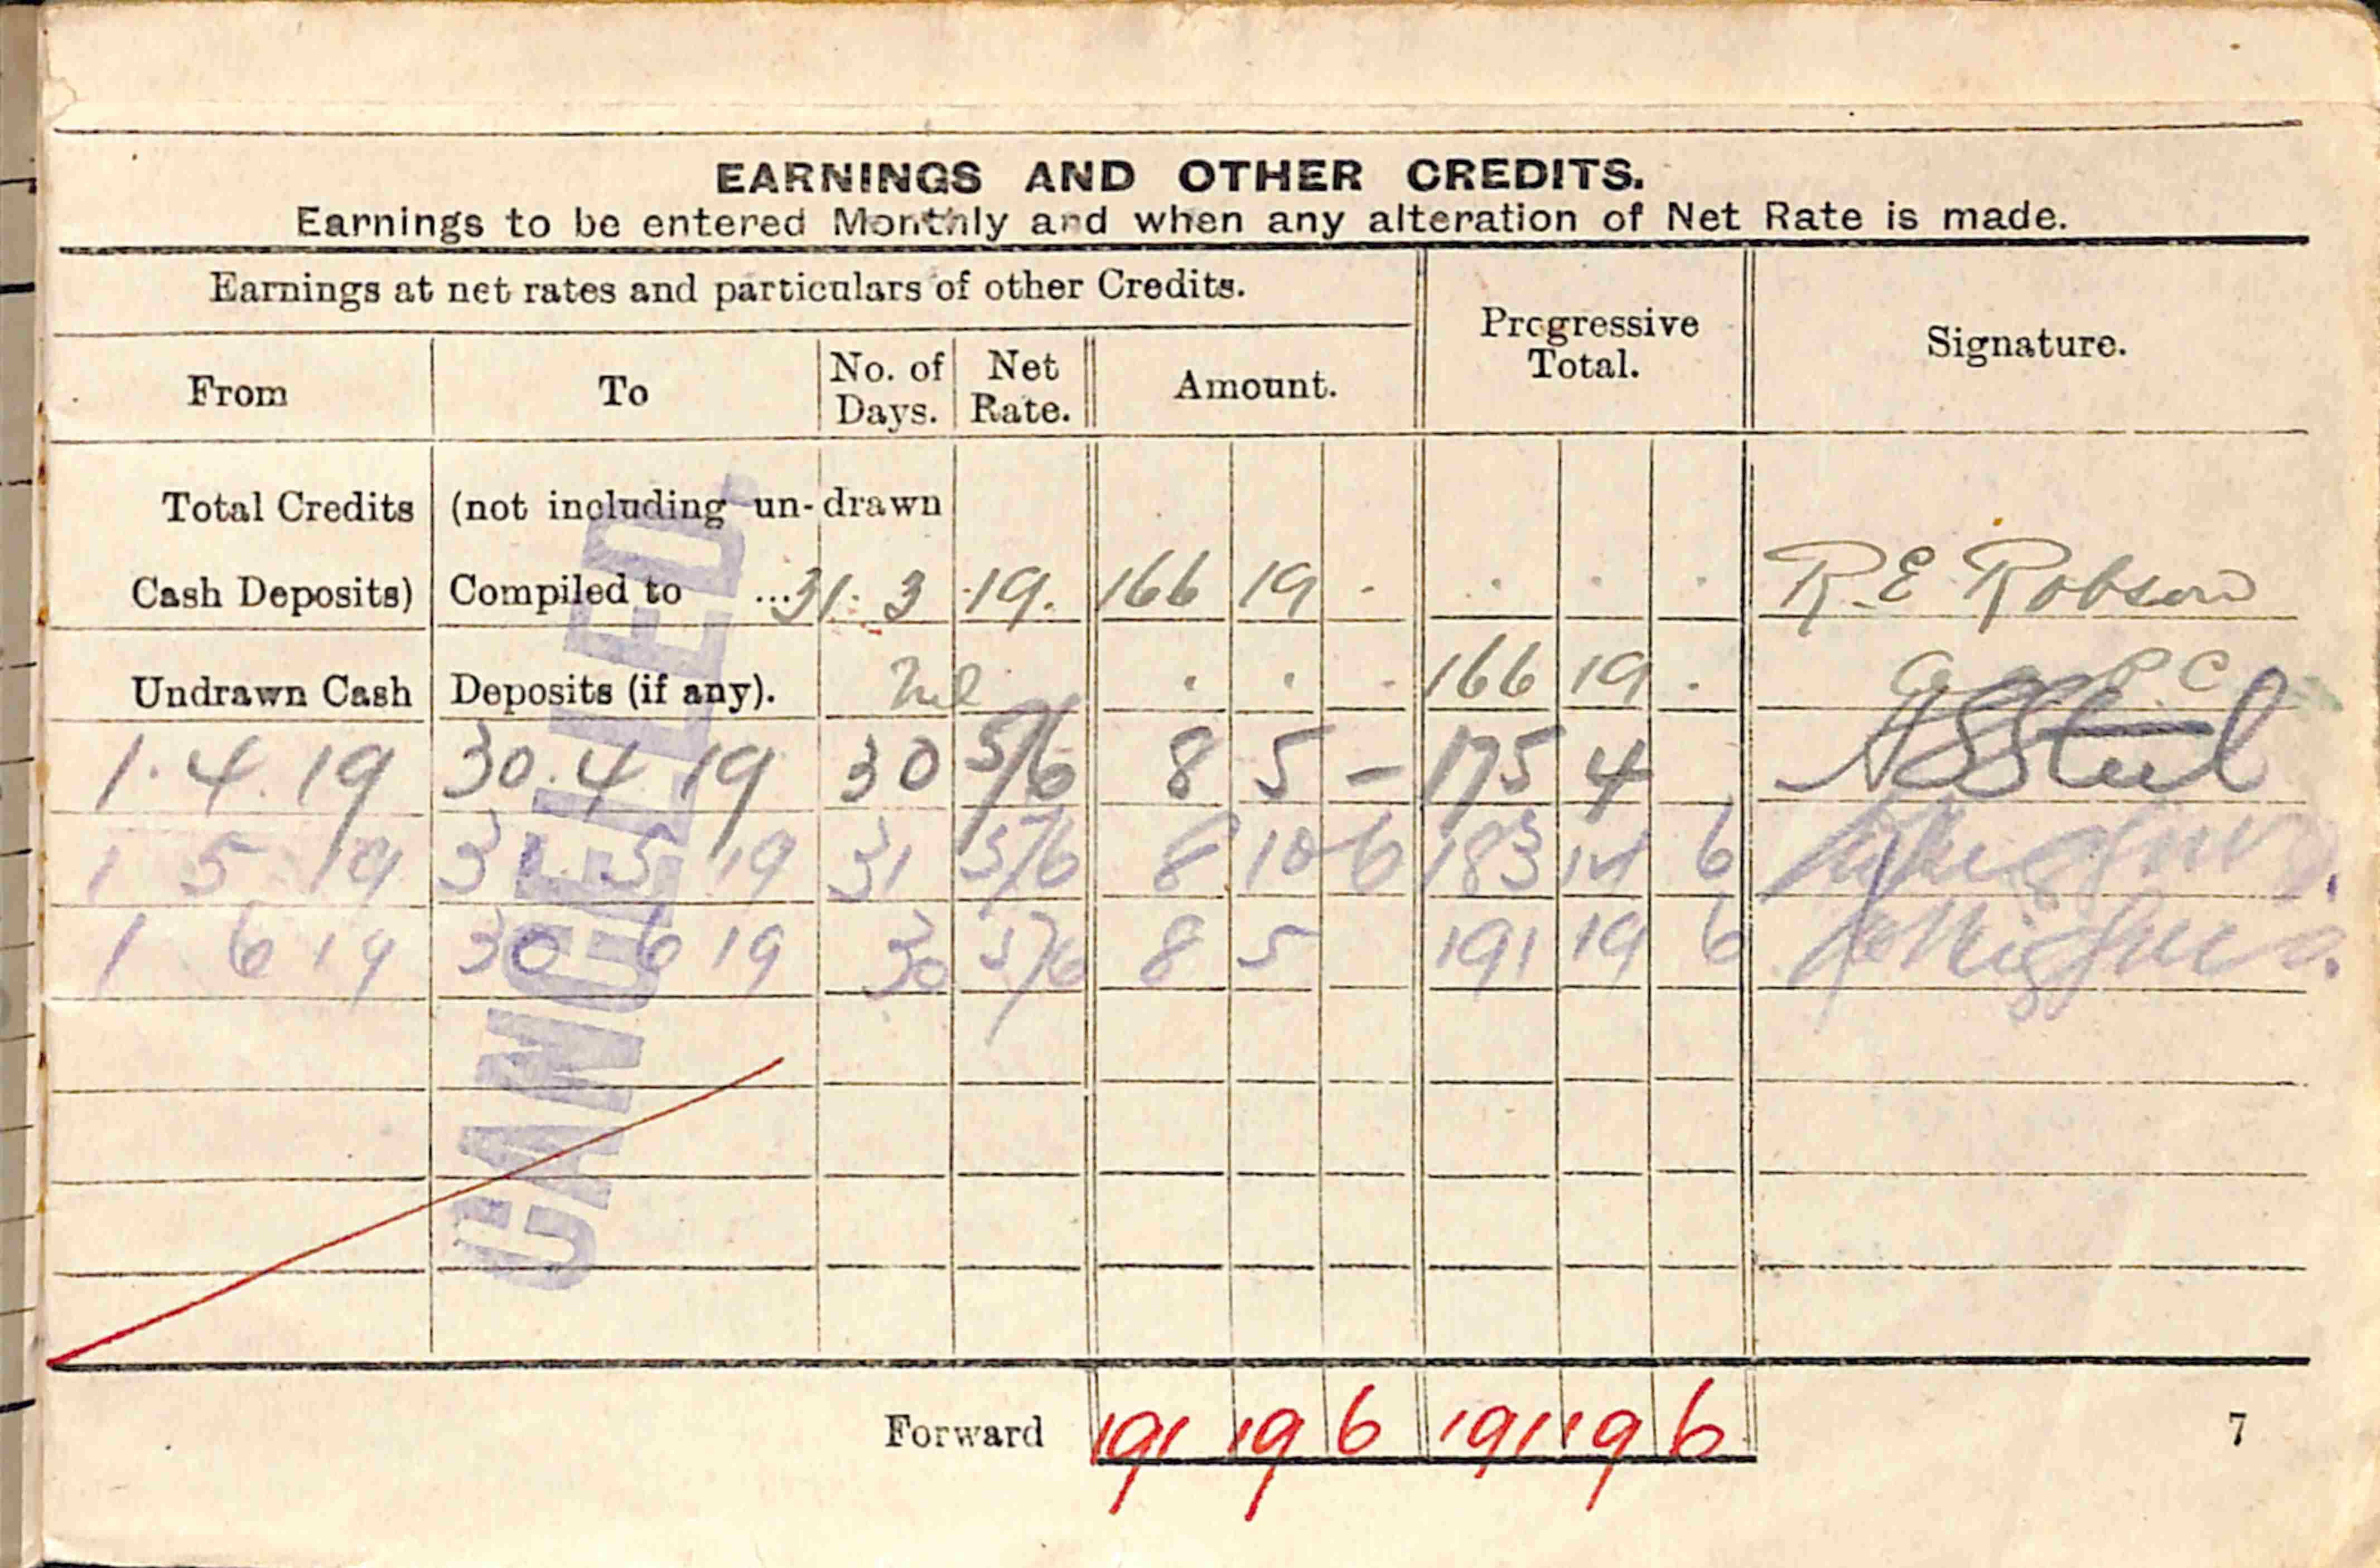 EARNINGS AND OTHER CREDITS.
Earnings to be entered Monthly and when any alteration of Net Rate is made.
Earnings at net rates and particulars of other Credits.
Progressive Total.
Signature.
From To No. of Days. Net Rate. Amount.
Total Credits (not including un-drawn
Cash Deposits) Compiled to ...31. 3 .19. 166 19 . . . . R.E Robson
Undrawn Cash Deposits (if any). Nil . . . 166 19 .
1.4.19 30.4.19 30 5/6 8 5 – 175 4
1 5 19 31 5 19 31 5/6 8 10 6 183 14 6
1 6 19 30 6 19 30 5/6 8 5 191 19 6
CANCELLED.
Forward 191 19 6 191 19 6
7